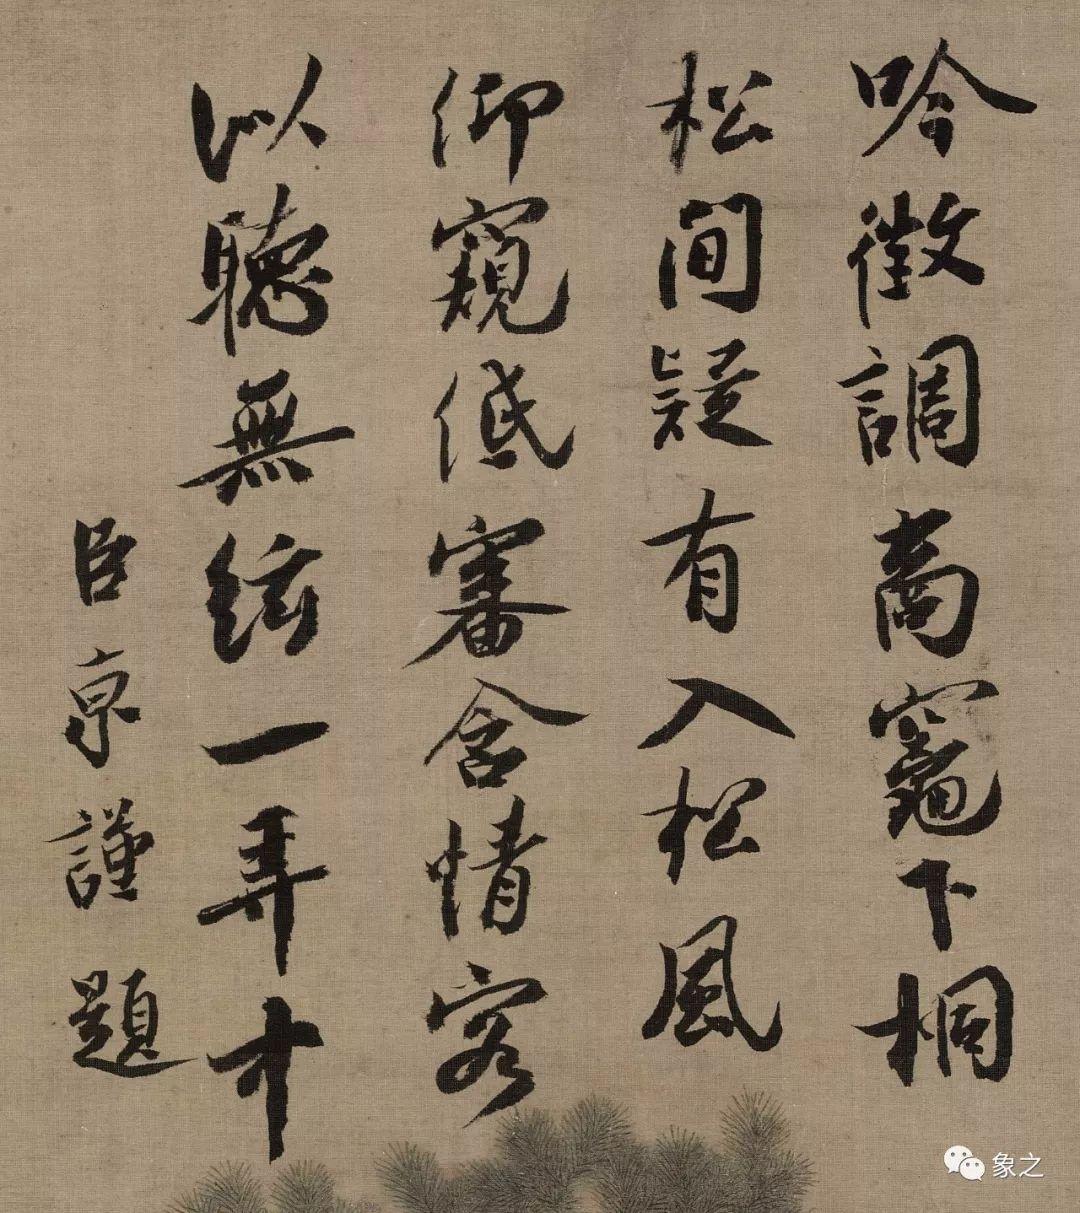 吟徵調商竈下桐
松間疑有入松風
仰窺低審含情客
以聽無絃一弄中
臣京謹題
象之